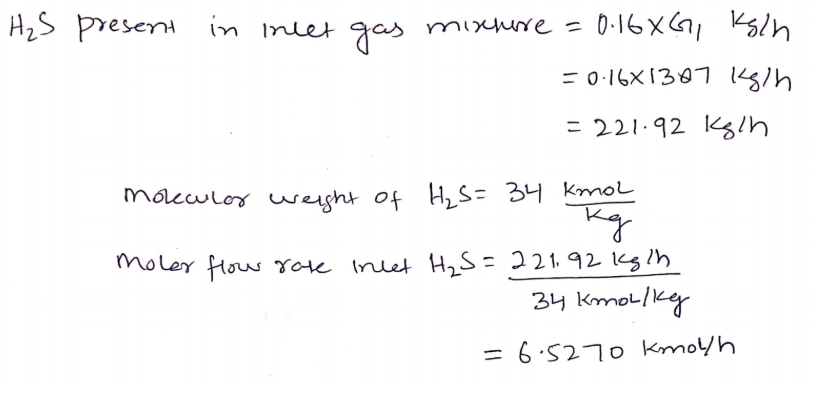 H₂S present in inlet gas mixture = 0.16×G₁ Kg/h
= 0.16×1387 Kg/h
= 221.92 Kg/h
Molecular weight of H₂S = 34 Kmol/Kg
Moler flow rate inlet H₂S = 221.92 Kg/h / 34 Kmol/Kg
= 6.5270 Kmol/h